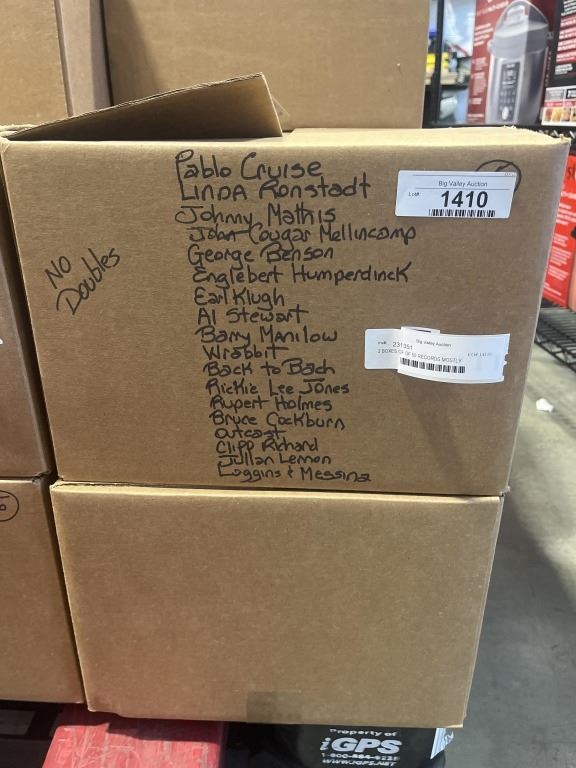 Pablo Cruise
LINDA Ronstadt
Johnny Mathis
John Cougar Mellincamp
George Benson
Englebert Humperdinck
Earl Klugh
Al Stewart
Barry Manilow
Wrabbit
Back to Bach
Rickie Lee Jones
Rupert Holmes
Bruce Cockburn
outcast
Cliff Richard
Julian Lennon
Loggins & Messina
NO
Doubles
Big Valley Auction
Lot# 1410
Big Valley Auction
231351
2 BOXES OF 50 RECORDS MOSTLY
Property of
iGPS
1-800-884-0225
WWW.IGPS.NET